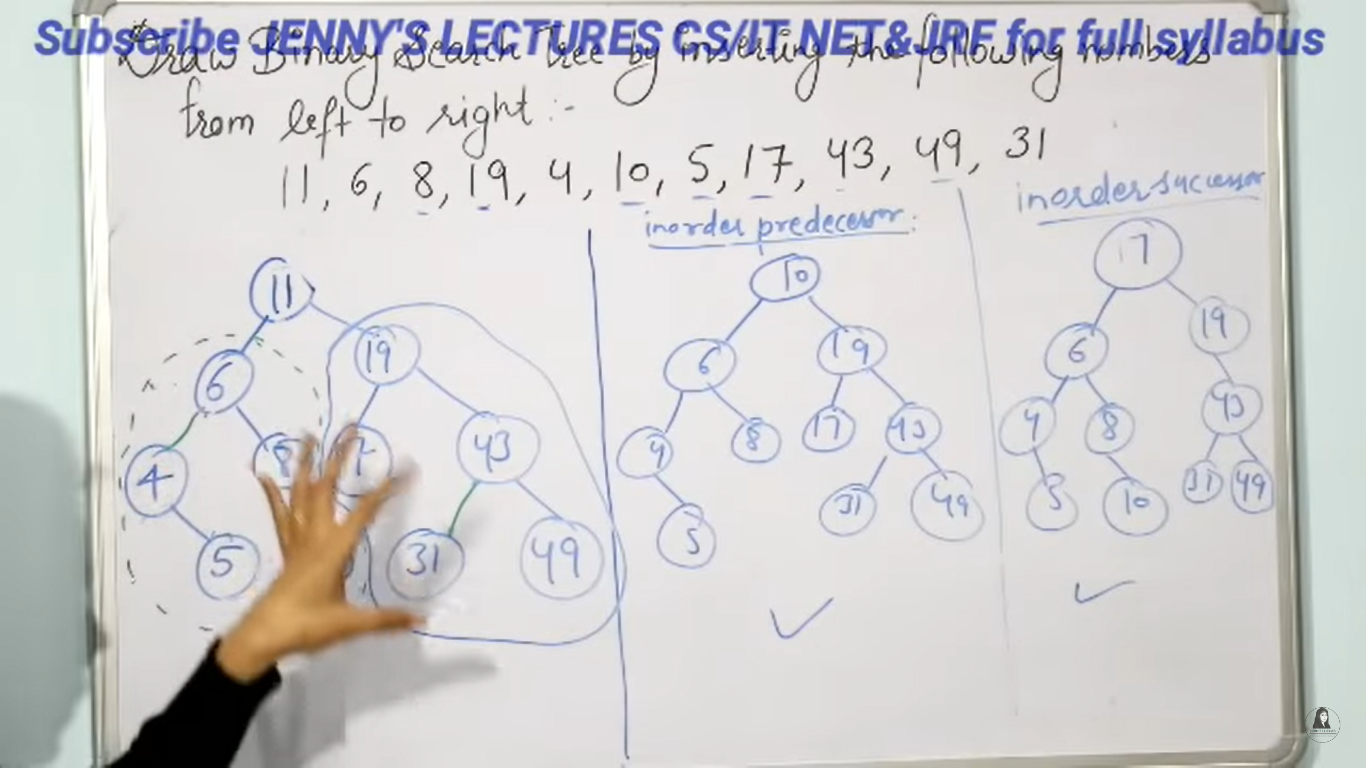 Subscribe JENNY'S LECTURES CS/IT NET&JRF for full syllabus
Draw Binary Search Tree by inserting the following numbers
from left to right :-
11, 6, 8, 19, 4, 10, 5, 17, 43, 49, 31
inorder predecessor.
inorder successor
11
6
19
4
8
43
5
31
49
10
6
19
4
8
17
43
5
31
49
17
6
19
4
8
43
5
10
31
49